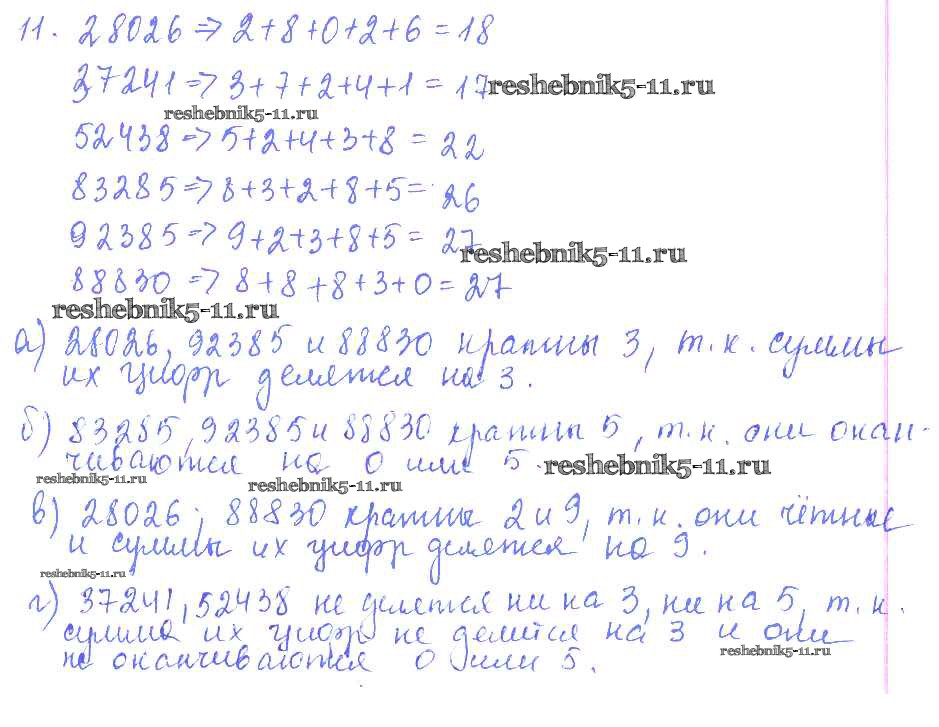 11. 28026 => 2+8+0+2+6 = 18
37241 => 3+7+2+4+1 = 17 reshebnik5-11.ru
reshebnik5-11.ru
52438 => 5+2+4+3+8 = 22
83285 => 8+3+2+8+5 = 26
92385 => 9+2+3+8+5 = 27
reshebnik5-11.ru
88830 => 8+8+8+3+0 = 27
reshebnik5-11.ru
а) 28026, 92385 и 88830 кратны 3, т.к. суммы
их цифр делятся на 3.
б) 83285, 92385 и 88830 кратны 5, т.к. они окан-
чиваются на 0 или 5. reshebnik5-11.ru
reshebnik5-11.ru
reshebnik5-11.ru
в) 28026; 88830 кратны 2 и 9, т.к. они чётные
и суммы их цифр делятся на 9.
reshebnik5-11.ru
г) 37241, 52438 не делятся ни на 3, ни на 5, т.к.
сумма их цифр не делится на 3 и они
не оканчиваются 0 или 5.
reshebnik5-11.ru